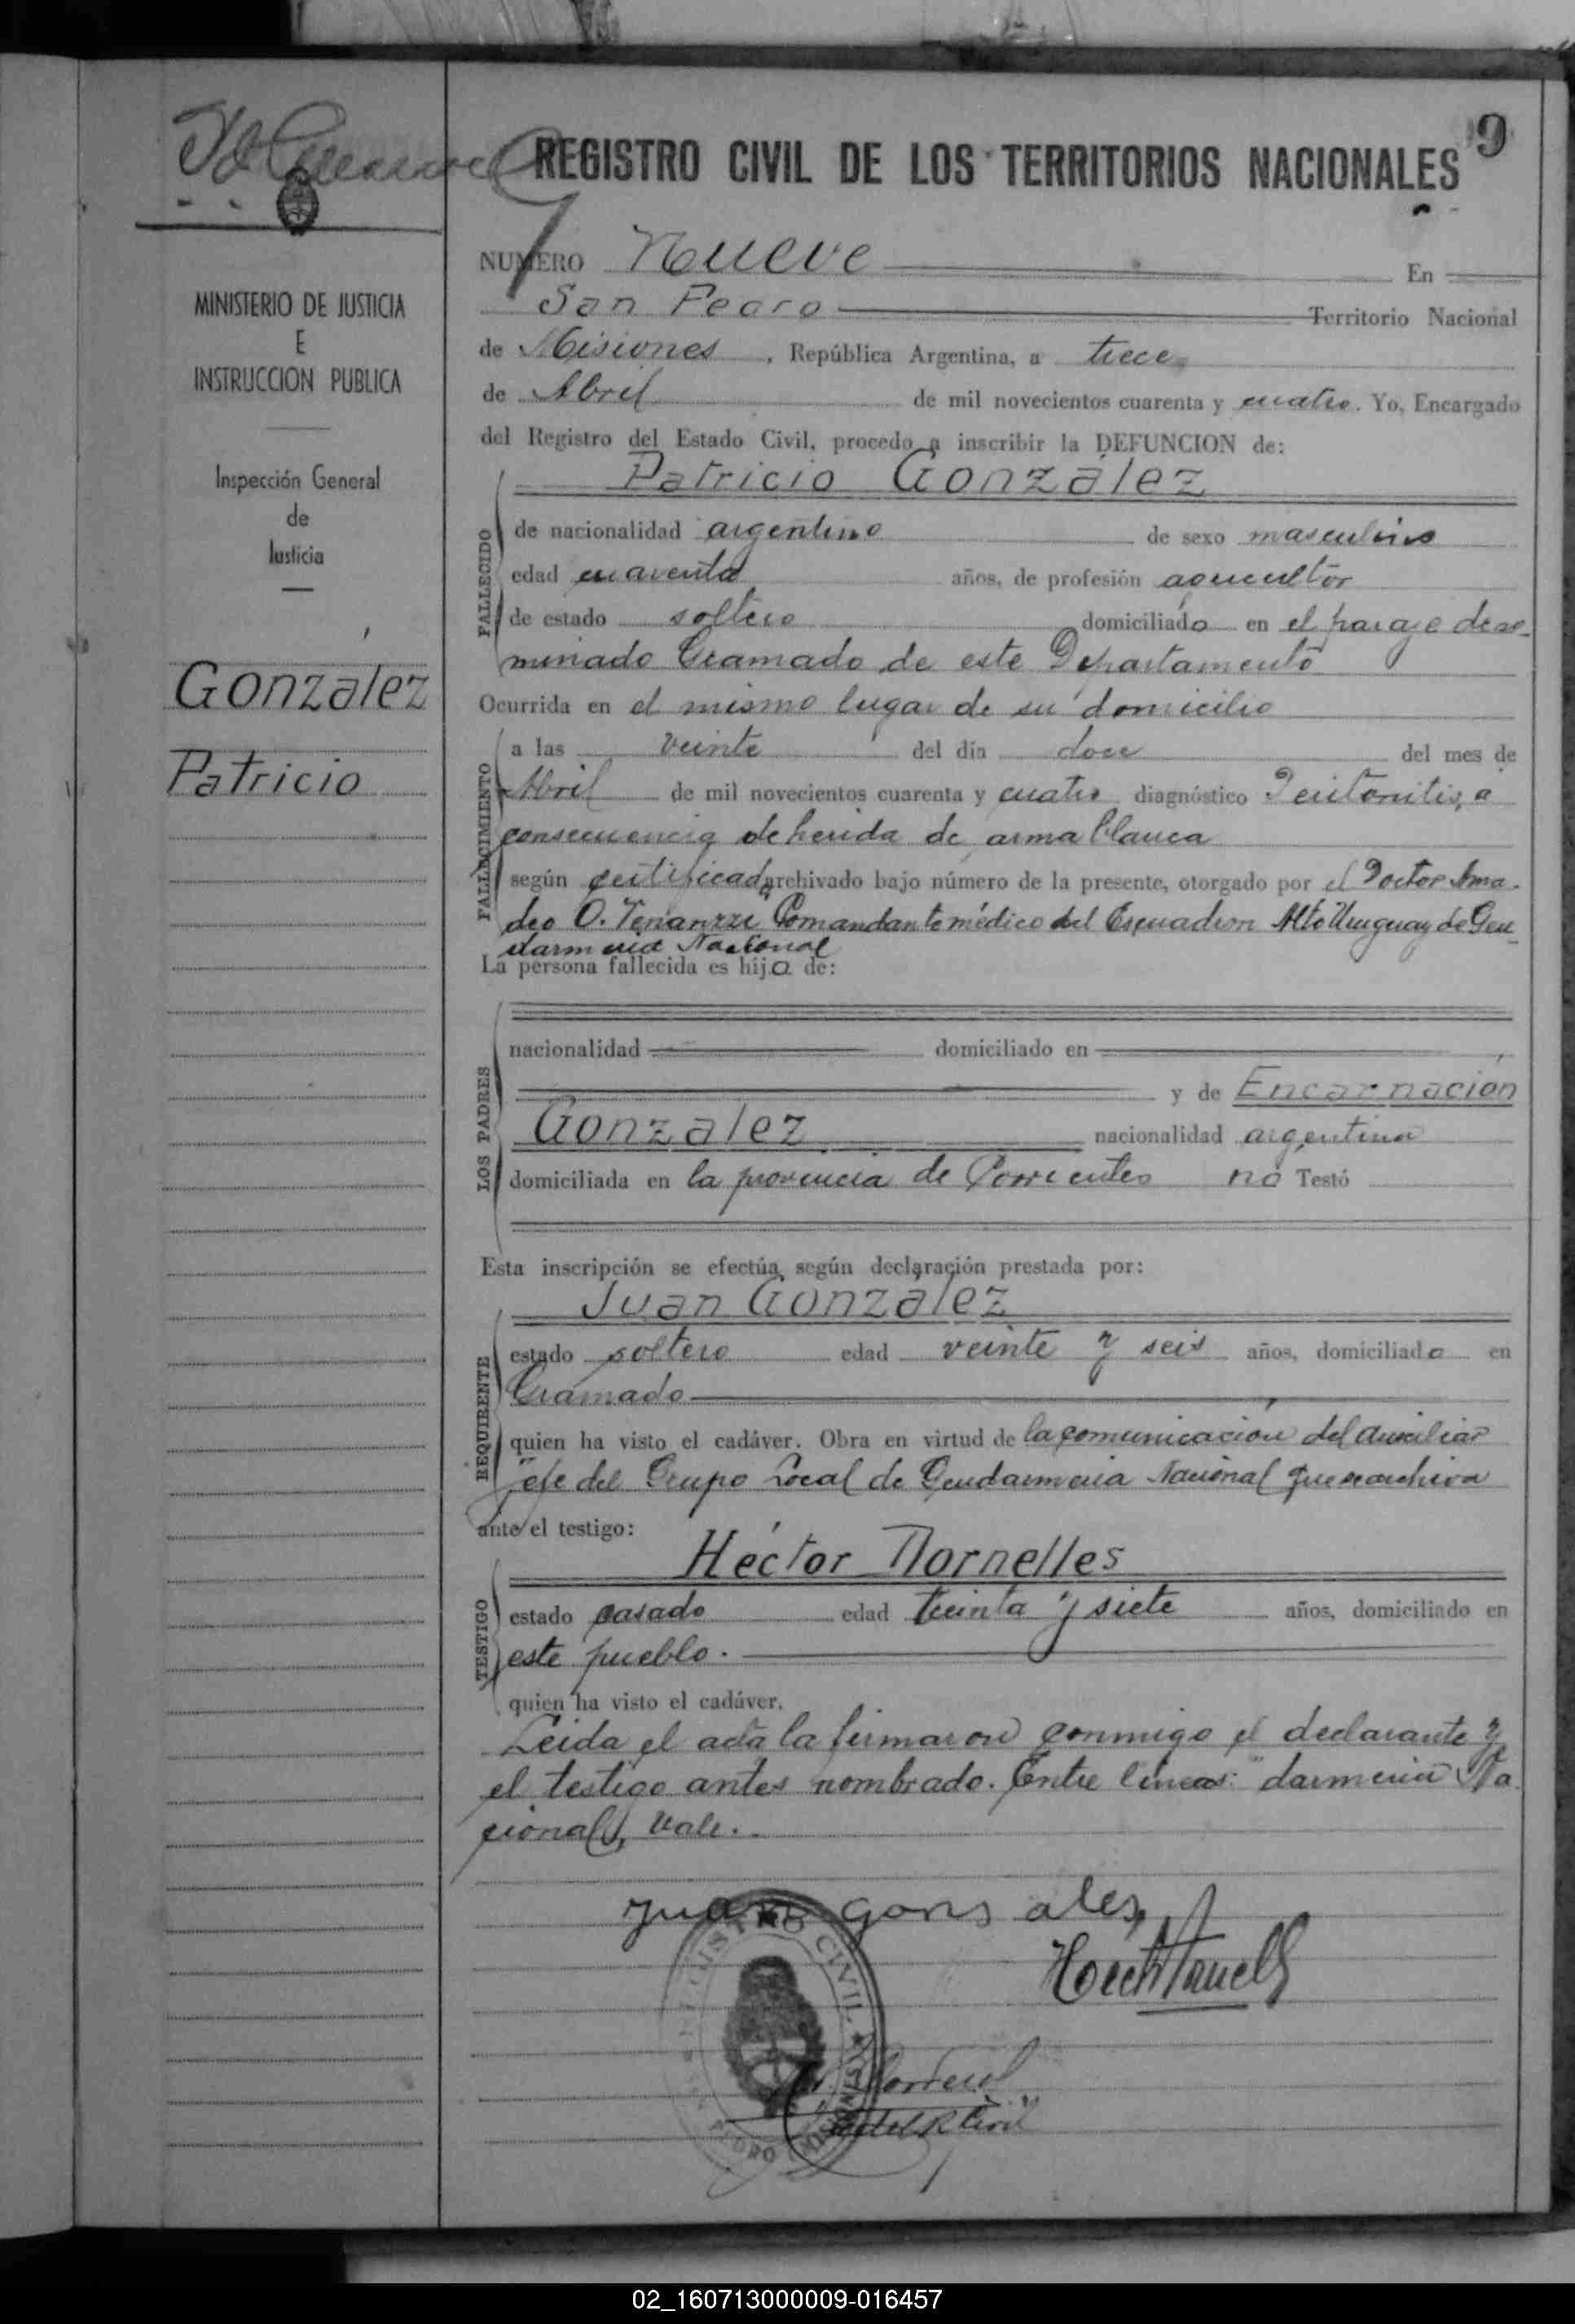 9
REGISTRO CIVIL DE LOS TERRITORIOS NACIONALES
MINISTERIO DE JUSTICIA
E
INSTRUCCION PUBLICA
Inspección General
de
Justicia
Gonzalez
Patricio
NUMERO Nueve En
San Pedro Territorio Nacional
de Misiones, República Argentina, a trece
de Abril de mil novecientos cuarenta y cuatro. Yo, Encargado
del Registro del Estado Civil, procedo a inscribir la DEFUNCION de:
Patricio González
FALLECIDO
de nacionalidad argentino de sexo masculino
edad cuarenta años, de profesión agricultor
de estado soltero domiciliado en el paraje deno-
minado Gramado de este Departamento
Ocurrida en el mismo lugar de su domicilio
FALLECIMIENTO
a las veinte del día doce del mes de
Abril de mil novecientos cuarenta y cuatro diagnóstico Peritonitis, a
consecuencia de herida de arma blanca
según certificado archivado bajo número de la presente, otorgado por el Doctor Ama-
deo O. Venanzzi Comandante médico del Escuadron Alto Uruguay de Gen-
darmeria Nacional
La persona fallecida es hijo de:
LOS PADRES
nacionalidad domiciliado en
y de Encarnación
Gonzalez nacionalidad argentina
domiciliada en la provincia de Corrientes no Testó
Esta inscripción se efectúa según declaración prestada por:
Juan González
REQUIRENTE
estado soltero edad veinte y seis años, domiciliado en
Gramado
quien ha visto el cadáver. Obra en virtud de la comunicación del Auxiliar
Jefe del Grupo Local de Gendarmeria Nacional que se archiva
ante el testigo:
Héctor Dornelles
TESTIGO
estado casado edad treinta y siete años, domiciliado en
este pueblo.
quien ha visto el cadáver.
Leida el acta la firmaron conmigo el declarante y
el testigo antes nombrado. Entre lineas: "darmeria Na
cional", Vale.
Juan gonsales
REGISTRO CIVIL
SAN PEDRO MISIONES
02_160713000009-016457